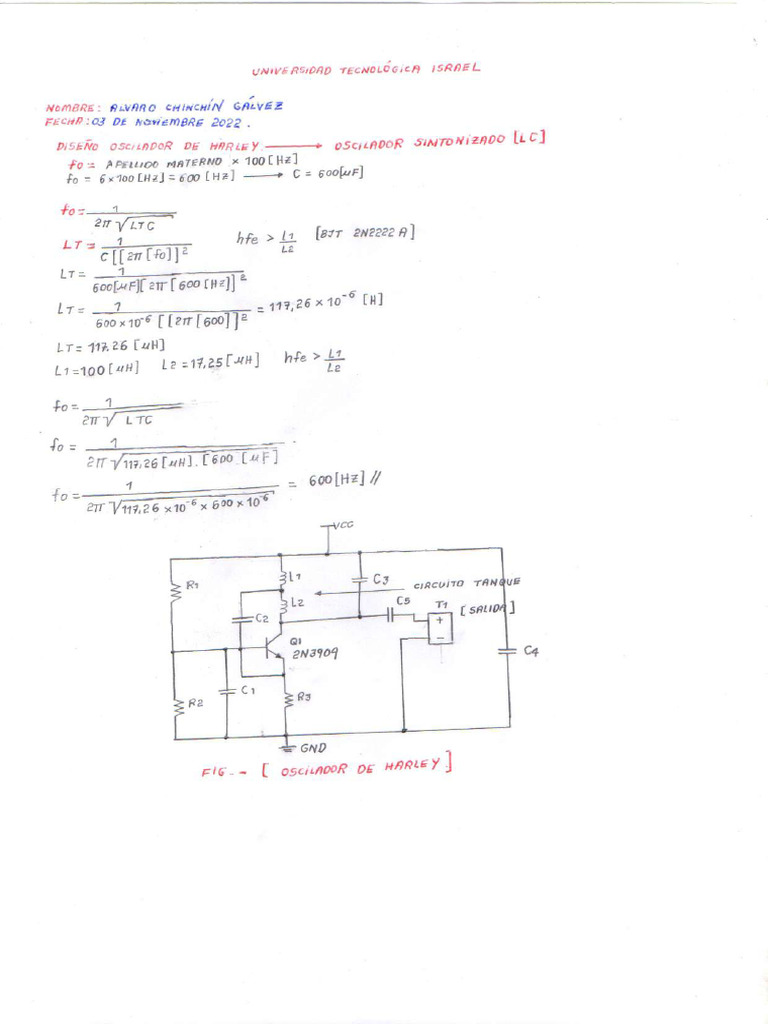 UNIVERSIDAD TECNOLÓGICA ISRAEL
NOMBRE: ALVARO CHINCHÍN GÁLVEZ
FECHA: 03 DE NOVIEMBRE 2022.
DISEÑO OSCILADOR DE HARLEY. → OSCILADOR SINTONIZADO [LC]
fo = APELLIDO MATERNO × 100 [Hz]
fo = 6×100[Hz] = 600 [Hz] → C = 600[μF]
fo = 1 / 2π √LTC
LT = 1 / C[[2π[fo]]² hfe > L1/L2 [BJT 2N2222A]
LT = 1 / 600[μF][2π[600[Hz]]²
LT = 1 / 600×10⁻⁶ [[2π[600]]² = 117,26 × 10⁻⁶ [H]
LT = 117,26 [μH]
L1 = 100[μH] L2 = 17,25[μH] hfe > L1/L2
fo = 1 / 2π√ LTC
fo = 1 / 2π√117,26[μH].[600 [μF]
fo = 1 / 2π√117,26 ×10⁻⁶ × 600 × 10⁻⁶ = 600[Hz] //
VCC
R1
L1
C3
CIRCUITO TANQUE
L2
C5
T1
[SALIDA]
C2
+
Q1
2N3909
-
C4
C1
R2
R3
GND
FIG. - [ OSCILADOR DE HARLEY ]